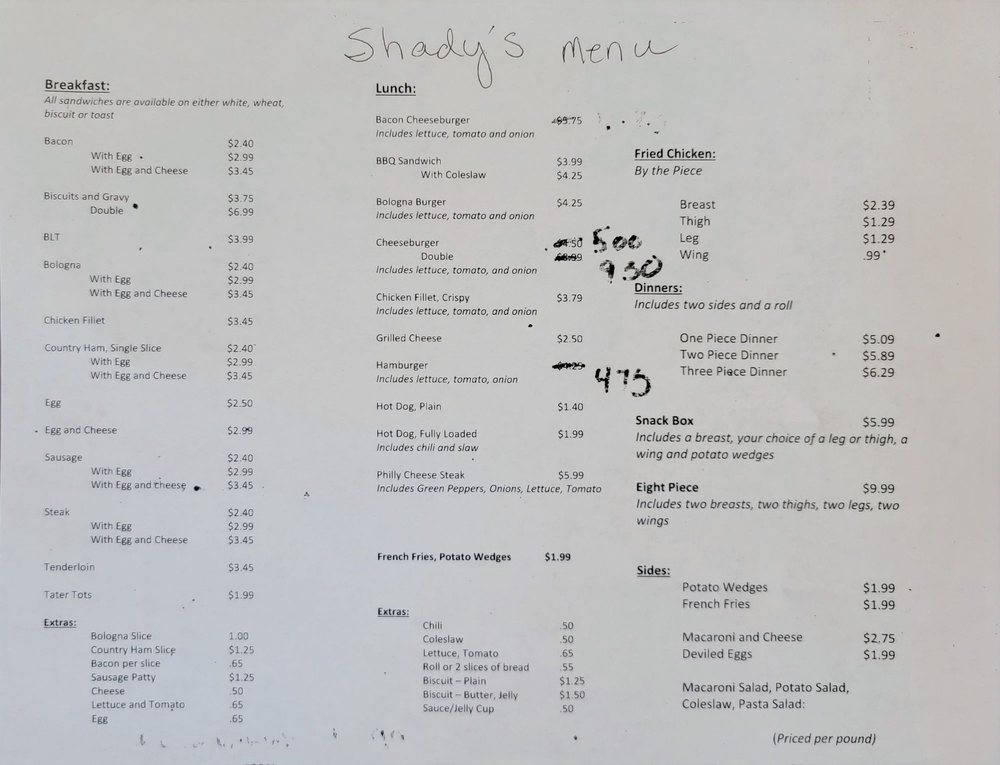 Shady's menu
Breakfast:
All sandwiches are available on either white, wheat,
biscuit or toast
Bacon $2.40
With Egg $2.99
With Egg and Cheese $3.45
Biscuits and Gravy $3.75
Double $6.99
BLT $3.99
Bologna $2.40
With Egg $2.99
With Egg and Cheese $3.45
Chicken Fillet $3.45
Country Ham, Single Slice $2.40
With Egg $2.99
With Egg and Cheese $3.45
Egg $2.50
Egg and Cheese $2.99
Sausage $2.40
With Egg $2.99
With Egg and cheese $3.45
Steak $2.40
With Egg $2.99
With Egg and Cheese $3.45
Tenderloin $3.45
Tater Tots $1.99
Extras:
Bologna Slice 1.00
Country Ham Slice $1.25
Bacon per slice .65
Sausage Patty $1.25
Cheese .50
Lettuce and Tomato .65
Egg .65
Lunch:
Bacon Cheeseburger
Includes lettuce, tomato and onion
BBQ Sandwich $3.99
With Coleslaw $4.25
Bologna Burger $4.25
Includes lettuce, tomato and onion
Cheeseburger 500
Double 950
Includes lettuce, tomato, and onion
Chicken Fillet, Crispy $3.79
Includes lettuce, tomato, and onion
Grilled Cheese $2.50
Hamburger 475
Includes lettuce, tomato, onion
Hot Dog, Plain $1.40
Hot Dog, Fully Loaded $1.99
Includes chili and slaw
Philly Cheese Steak $5.99
Includes Green Peppers, Onions, Lettuce, Tomato
French Fries, Potato Wedges $1.99
Extras:
Chili .50
Coleslaw .50
Lettuce, Tomato .65
Roll or 2 slices of bread .55
Biscuit – Plain $1.25
Biscuit – Butter, Jelly $1.50
Sauce/Jelly Cup .50
Fried Chicken:
By the Piece
Breast $2.39
Thigh $1.29
Leg $1.29
Wing .99
Dinners:
Includes two sides and a roll
One Piece Dinner $5.09
Two Piece Dinner $5.89
Three Piece Dinner $6.29
Snack Box $5.99
Includes a breast, your choice of a leg or thigh, a
wing and potato wedges
Eight Piece $9.99
Includes two breasts, two thighs, two legs, two
wings
Sides:
Potato Wedges $1.99
French Fries $1.99
Macaroni and Cheese $2.75
Deviled Eggs $1.99
Macaroni Salad, Potato Salad,
Coleslaw, Pasta Salad:
(Priced per pound)